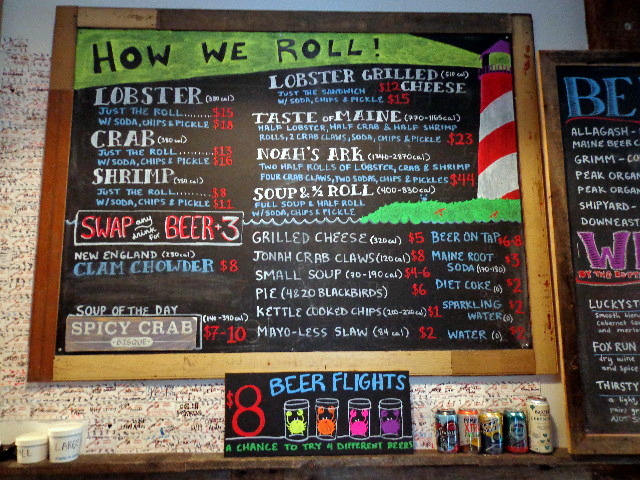 HOW WE ROLL!
LOBSTER
JUST THE ROLL........$15
W/ SODA, CHIPS & PICKLE $18
CRAB
JUST THE ROLL........$13
W/ SODA, CHIPS & PICKLE $16
SHRIMP
JUST THE ROLL........$8
W/ SODA, CHIPS & PICKLE $11
SWAP any drink for BEER +3
NEW ENGLAND (230 cal)
CLAM CHOWDER $8
SOUP OF THE DAY
SPICY CRAB
BISQUE
$7-10
LOBSTER GRILLED CHEESE (510 cal)
JUST THE SANDWICH $12
W/ SODA, CHIPS & PICKLE $15
TASTE OF MAINE (770-1165 cal)
HALF LOBSTER, HALF CRAB & HALF SHRIMP
ROLLS, 2 CRAB CLAWS, SODA, CHIPS & PICKLE $23
NOAH'S ARK (1340-2870 cal)
TWO HALF ROLLS OF LOBSTER, CRAB & SHRIMP
FOUR CRAB CLAWS, TWO SODAS, CHIPS & PICKLES $44
SOUP & ½ ROLL (400-830 cal)
FULL SOUP & HALF ROLL
W/ SODA, CHIPS & PICKLE
GRILLED CHEESE (320 cal) $5
JONAH CRAB CLAWS (120 cal) $8
SMALL SOUP (70-190 cal) $4-6
PIE (4 & 20 BLACKBIRDS) $6
KETTLE COOKED CHIPS $1
MAYO-LESS SLAW (84 cal) $2
BEER ON TAP $6-8
MAINE ROOT SODA $3
DIET COKE (0) $2
SPARKLING WATER (0) $2
WATER (0)
$8 BEER FLIGHTS
A CHANCE TO TRY 4 DIFFERENT BEERS
BE
ALLAGASH
MAINE BEER C
GRIMM - CO
PEAK ORGAN
PEAK ORGAN
SHIPYARD-
DOWNEAST
WI
LUCKYST
Smooth blen
cabernet Sa
and merlo
FOX RUN
dry wine
and spice
THIRSTY
a light,
LARGE